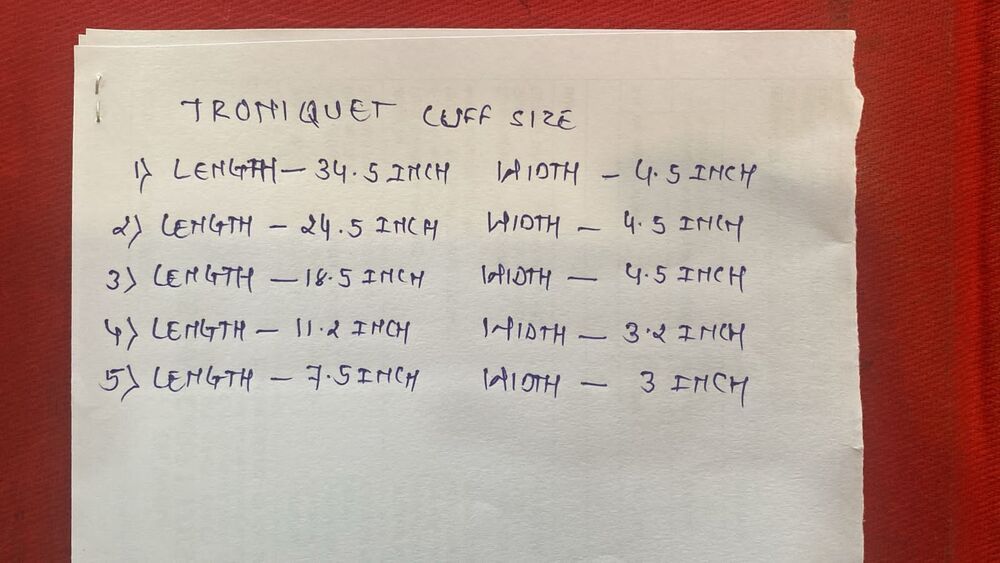 TRONIQUET CUFF SIZE
1) LENGTH - 34.5 INCH WIDTH - 4.5 INCH
2) LENGTH - 24.5 INCH WIDTH - 4.5 INCH
3) LENGTH - 18.5 INCH WIDTH - 4.5 INCH
4) LENGTH - 11.2 INCH WIDTH - 3.2 INCH
5) LENGTH - 7.5 INCH WIDTH - 3 INCH